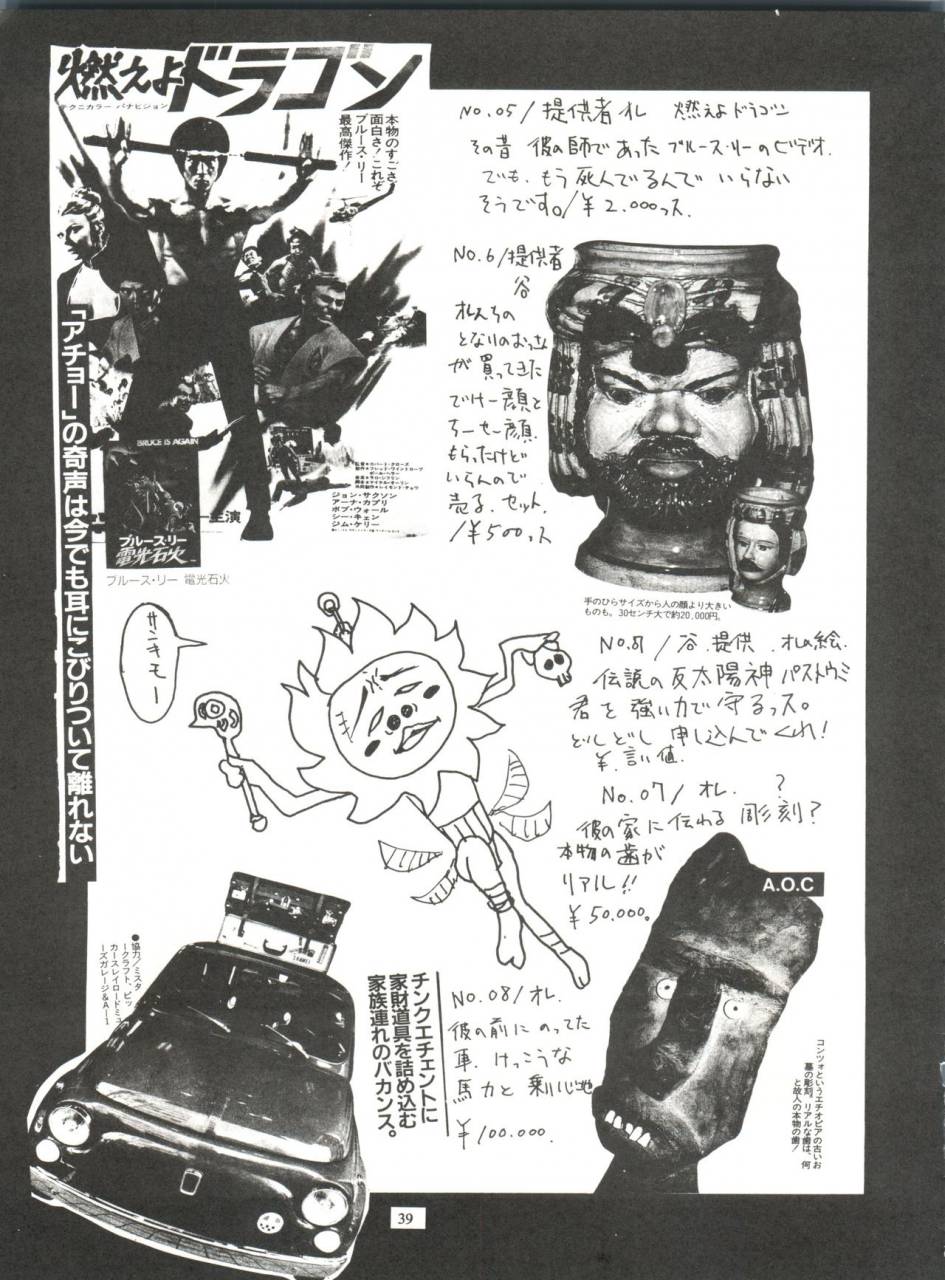 燃えよドラゴン
テクニカラー パナビジョン
本物のすごさ
面白さ！これぞ
ブルース・リー
最高傑作！
「アチョー」の奇声は今でも耳にこびりついて離れない
BRUCE IS AGAIN
主演
ジョン・サクソン
アーナ・カプリ
ボブ・ウォール
シー・キェン
ジム・ケリー
ブルース・リー
電光石火
ブルース・リー 電光石火
No.05/提供者オレ 燃えよドラゴン
その昔 彼の師であったブルース・リーのビデオ.
でも、もう死んでるんで いらない
そうです。/¥2.000っス.
No.6/提供者
谷
オレんちの
となりのおっさん
が買ってきた
でけー顔と
ちーせー顔.
もらったけど
いらんので
売る. セット.
/¥500っス
手のひらサイズから人の顔より大きい
ものも。30センチ大で約20,000円。
サンキモー
谷.提供. オレの絵.
伝説の反太陽神パストウミ
君を強い力で守るっス。
どしどし申し込んでくれ!
¥.言い値.
No.07/オレ. ?
彼の家に伝れる彫刻?
本物の歯が
リアル!!
¥50.000。
A.O.C
コンツォというエチオピアの古いお
墓の彫刻。リアルな歯は、何
と故人の本物の歯!
●協力/ミスタ
ークラフト、ビッ
カースレイロードミュ
ーズガレージ&A-1
チンクエチェントに
家財道具を詰め込む
家族連れのバカンス。
No.08/オレ.
彼の前にのってた
車. けっこうな
馬力と乗り心地
¥100.000.
39